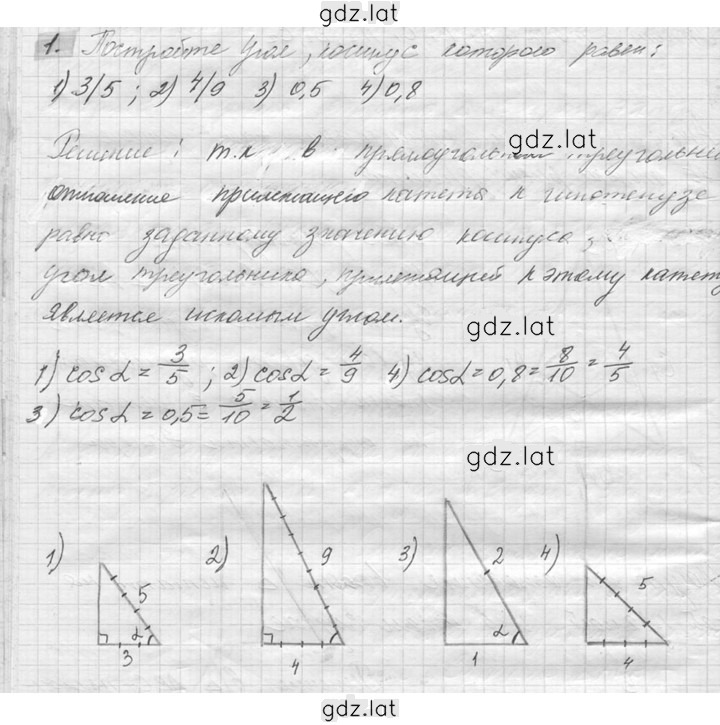 gdz.lat
1. Постройте угол, косинус которого равен:
1) 3/5 ; 2) 4/9 3) 0,5 4) 0,8
gdz.lat
Решение: т.к. в прямоугольном треугольни
отношение прилежащего катета к гипотенузе
равно заданному значению косинуса,
угол треугольника, прилежащий к этому катету
является искомым углом.
gdz.lat
1) cosα = 3/5 ; 2) cosα = 4/9 4) cosα = 0,8 = 8/10 = 4/5
3) cosα = 0,5 = 5/10 = 1/2
gdz.lat
1) 5 α 3
2) 9 4
3) 2 α 1
4) 5 4
gdz.lat